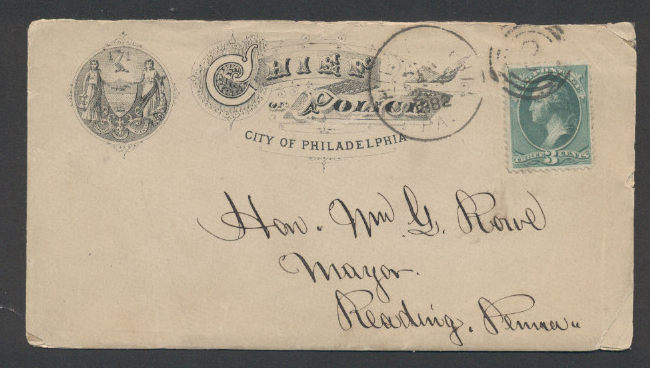 CHIEF
OF POLICE
CITY OF PHILADELPHIA
1882
PA.
3
Hon. Wm G. Rowe
Mayor.
Reading, Penna